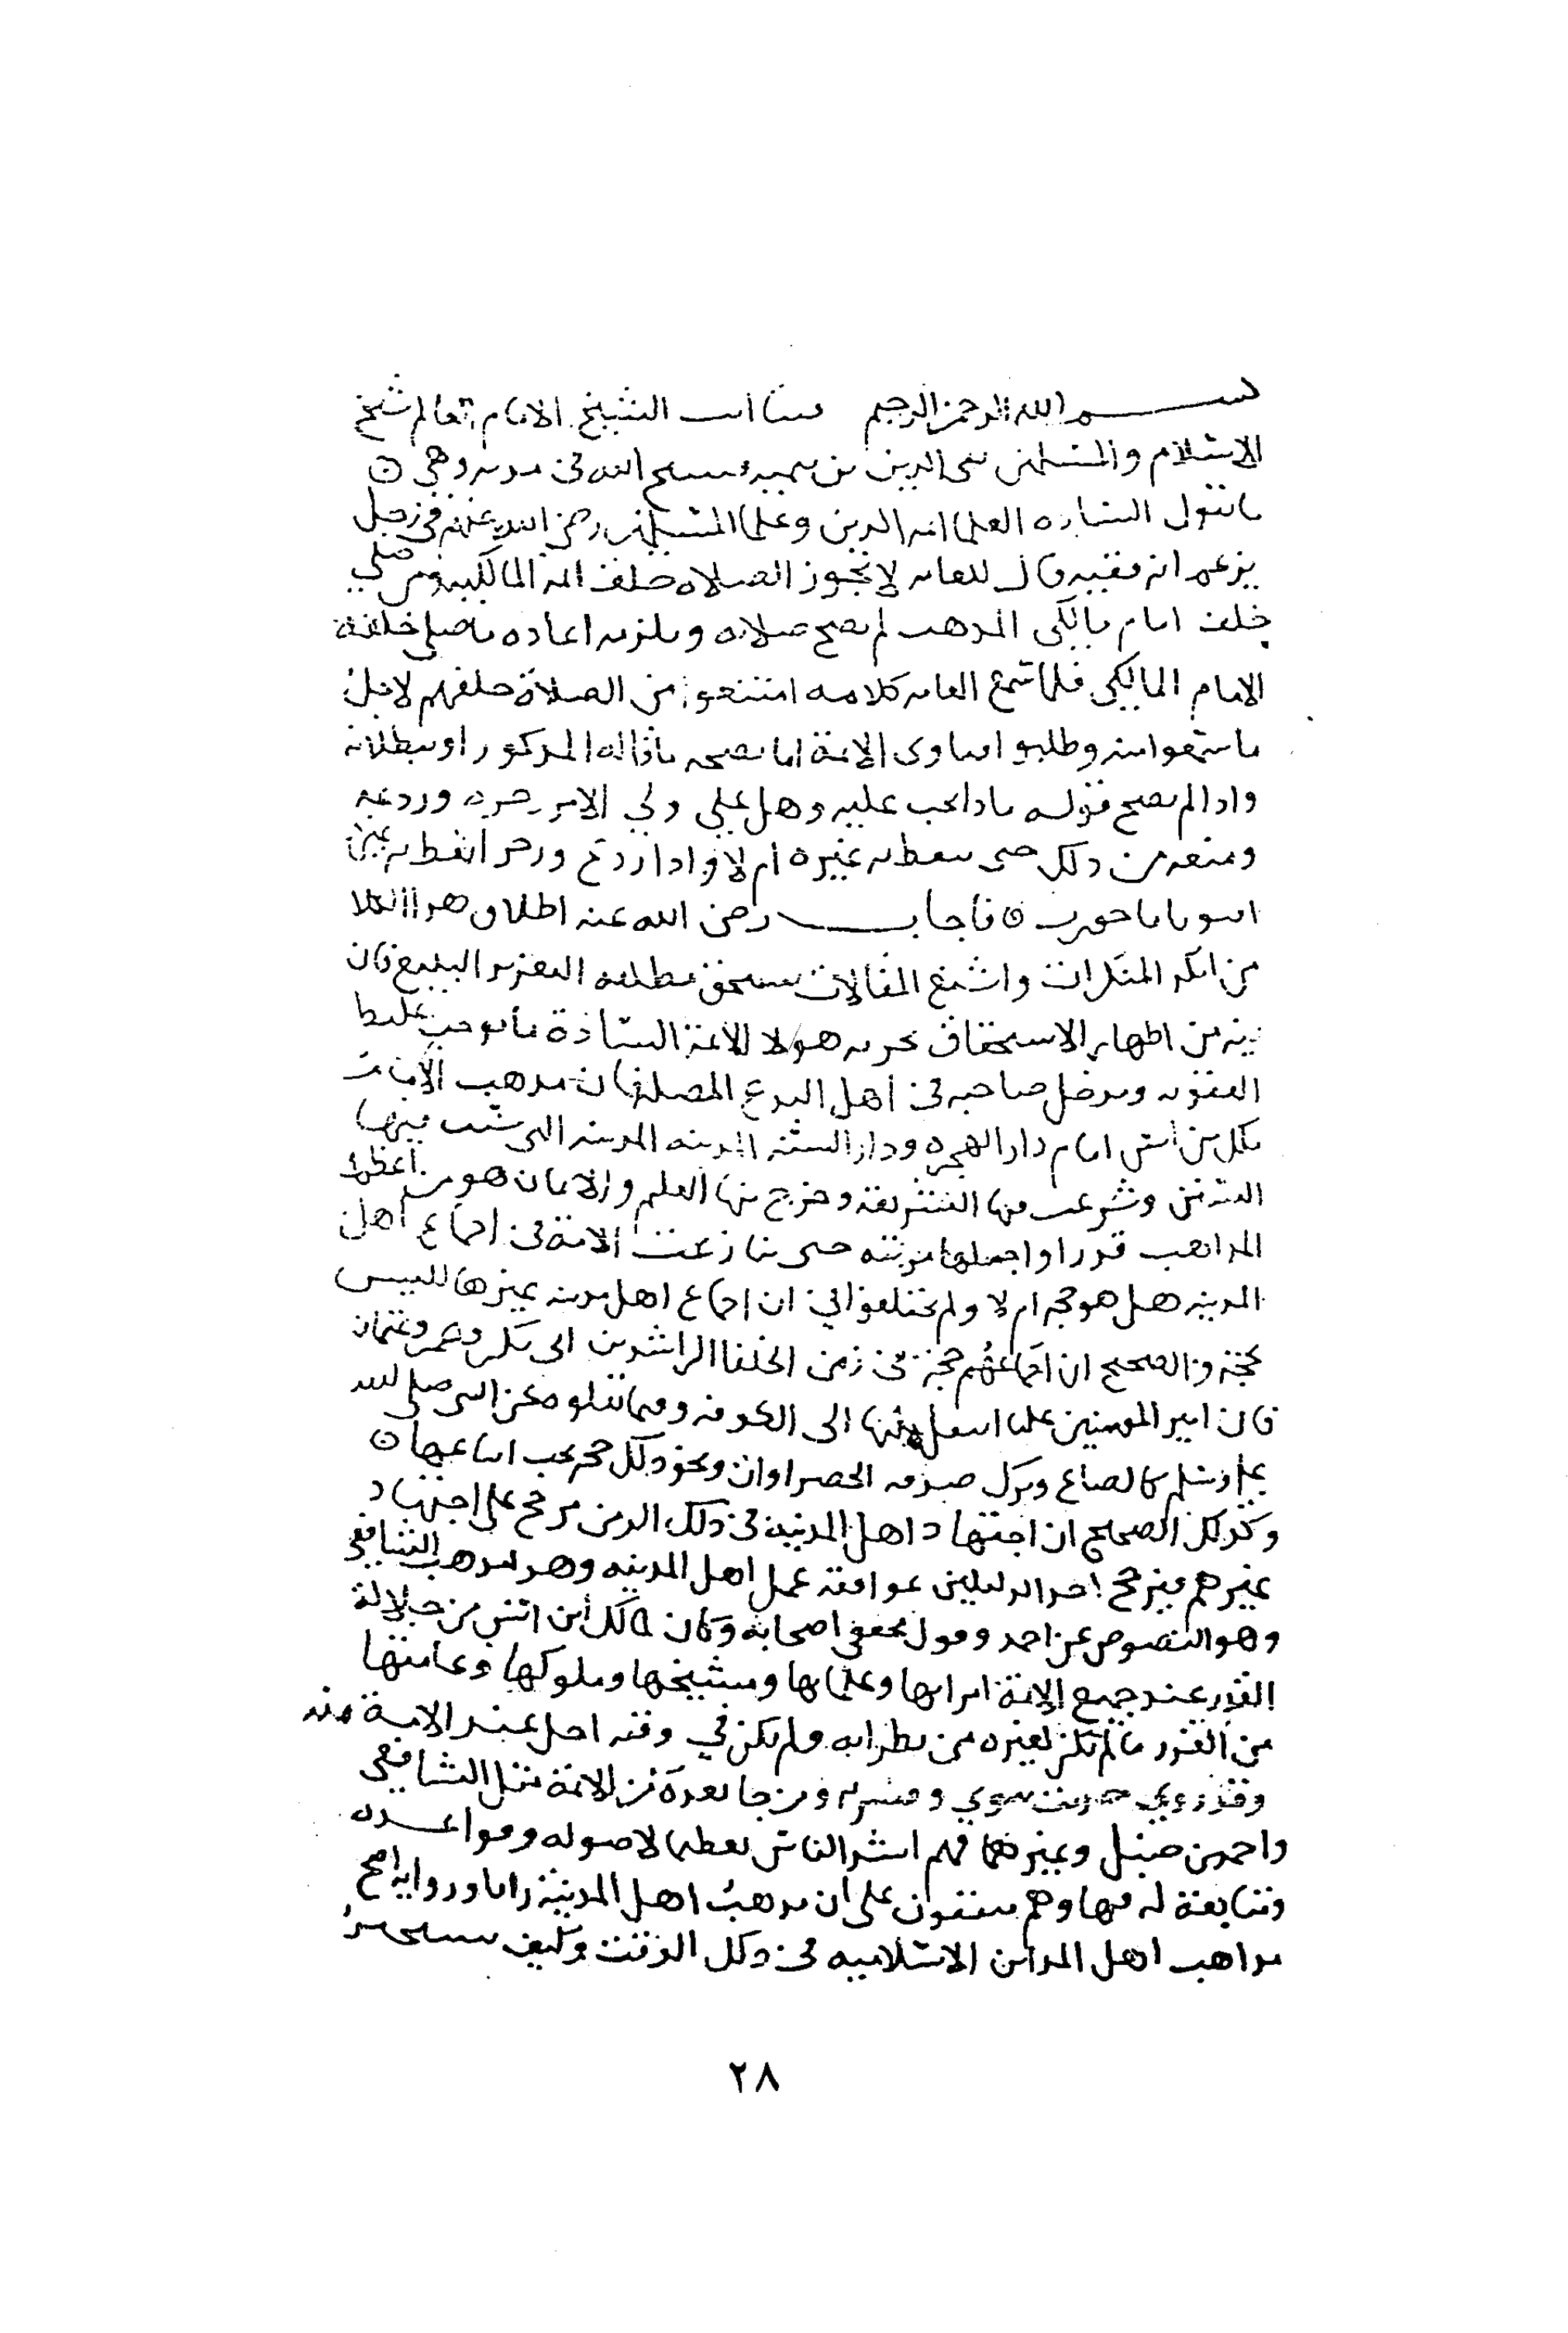 بسم الله الرحمن الرحيم مسأله الشيخ الامام العالم شيخ
الاسلام والمسلمين تقى الدين بن تيميه فسح الله فى مدته وهى
ما تقول الساده العلما ائمه الدين وعلما المسلمين رضى الله عنهم فى رجل
يزعم انه فقيه قال للعامه لا تجوز الصلاه خلف ائمه المالكيه ومن صلى
خلف امام مالكى المذهب لم تصح صلاته ويلزمه اعاده ما صلى خلف
الامام المالكى فلما سمع العامه كلامه امتنعوا من الصلاة خلفهم لاجل
ما سمعوا منه وطلبوا فتاوى الائمة اما بصحه ما قاله المذكور او ببطلانه
واذا لم يصح قوله ماذا يجب عليه وهل على ولي الامر زجره وردعه
ومنعه من ذلك حتى يتعظ به غيره ام لا واذا ردع وزجر اتعظ به غيره
افتونا ماجورين فأجاب رضى الله عنه اطلاق هذا الكلا
من انكر المنكرات واشنع المقالات يستحق مطلقه التعزير البليغ فان
فيه من اظهار الاستخفاف بحرمه هولا الائمة السادة ما يوجب غليظ
العقوبه ويدخل صاحبه فى أهل البدع المضلين فان مذهب الامام
ملك بن أنس امام دار الهجره ودار السنه المدينه التى سنت فيها
السنن وشرعت فيها الشريعه وخرج منها العلم والايمان هو من أعظم
المذاهب قدرا واجلها مرتبه حتى تنازعت الامة فى اجماع أهل
المدينه هل هو حجه ام لا ولم يختلفوا فى ان اجماع اهل مدينه غيرها ليس
بحجه والصحيح ان اجماعهم حجة فى زمن الخلفا الراشدين ابى بكر وعمر وعثمان
فان امير المومنين عليا انتقل منها الى الكوفه وفيما نقلوه عن النبى صلى الله
عليه وسلم كالصاع وترك صدقه الخضراوات ونحو ذلك حجه يجب اتباعها
وكذلك الصحيح ان اجتهاد اهل المدينة فى ذلك الزمن مرجح على اجتهاد
غيرهم فيرجح احد الدليلين بموافقه عمل اهل المدينه وهو مذهب الشافعى
وهو المنصوص عن احمد وقول محققى اصحابه وكان لمالك ابن انس من جلالة
القدر عند جميع الامة امرايها وعلمايها ومشيخها وملوكها وعامتها
من القدر ما لم يكن لغيره من نظرايه ولم يكن في وقته اجل عند الامة منه
وقد روي حديث نبوي وفسر به ومن جا بعده من الائمة مثل الشافعى
واحمد بن حنبل وغيرهما فهم اشد الناس تعظيما لاصوله وقواعده
ومتابعة له فيها وهم متفقون على أن مذهب اهل المدينة رايا ورواية اصح
مذاهب اهل المداين الاسلاميه فى ذلك الوقت وكيف يستجيز
٢٨